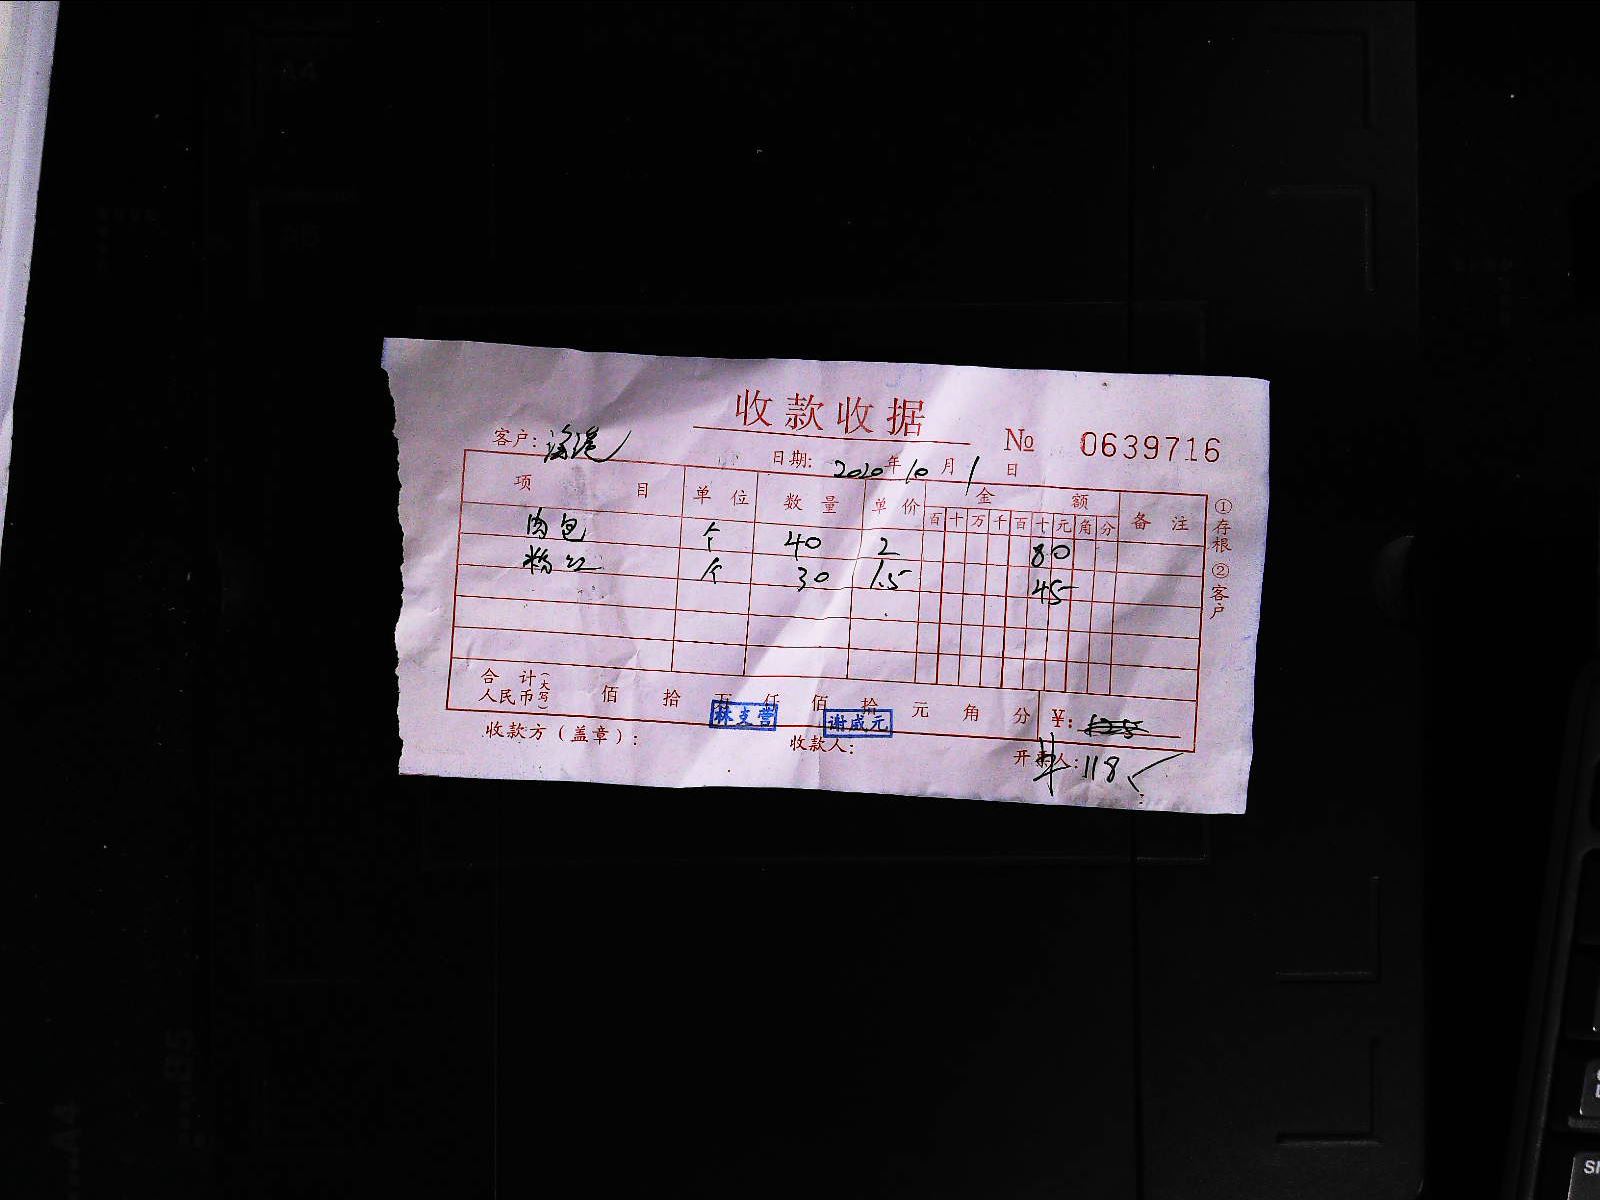 收款收据
№ 0639716
客户:
日期: 2020年10月1日
项目 单位 数量 单价 金额 备注
百 十 万 千 百 十 元 角 分
肉包 个 40 2 80
粉红 个 30 1.5 45
合计 人民币(大写) 佰 拾 万 仟 佰 拾 元 角 分 ¥:
林支营
谢咸元
收款方(盖章): 收款人: 开票人: 118
①存根 ②客户
A4
B5